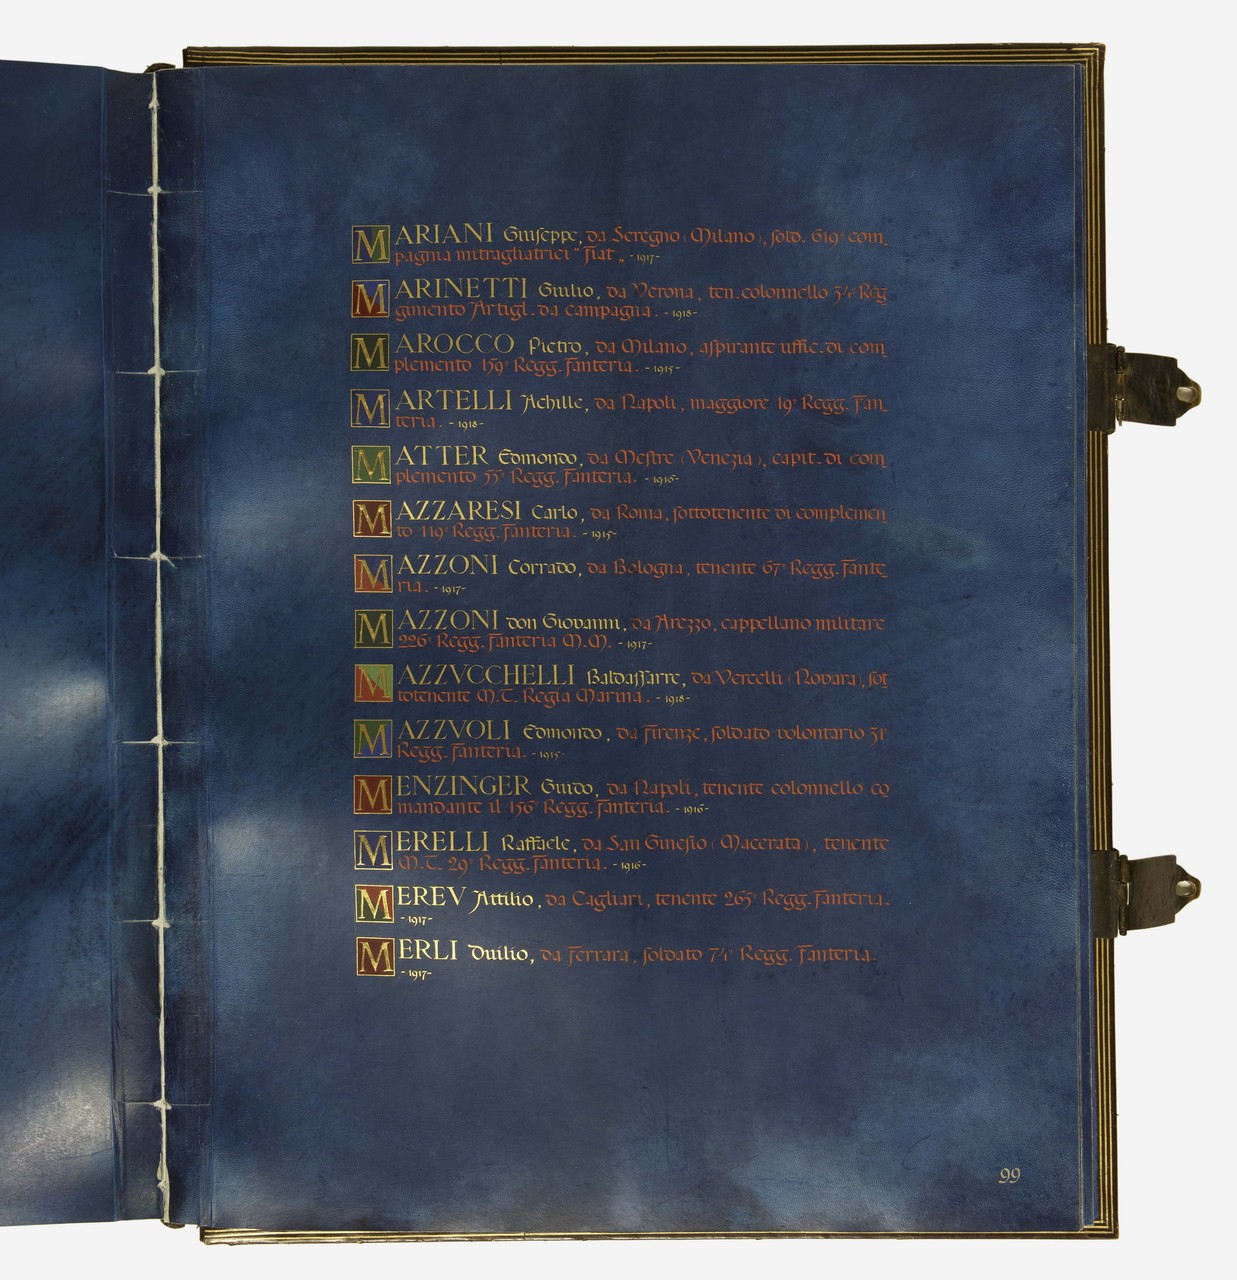 MARIANI Giuseppe, da Seregno (Milano), sold. 619ª com-
pagnia mitragliatrici "Fiat„ -1917-
MARINETTI Giulio, da Verona, ten. colonnello 34º Reg-
gimento Artigl. da campagna. -1918-
MAROCCO Pietro, da Milano, aspirante uffic. di com-
plemento 159º Regg. Fanteria. -1915-
MARTELLI Achille, da Napoli, maggiore 19º Regg. Fan-
teria. -1918-
MATTER Edmondo, da Mestre (Venezia), capit. di com-
plemento 55º Regg. Fanteria. -1916-
MAZZARESI Carlo, da Roma, sottotenente di complemen-
to 119º Regg. Fanteria. -1915-
MAZZONI Corrado, da Bologna, tenente 67º Regg. Fante-
ria. -1917-
MAZZONI don Giovanni, da Arezzo, cappellano militare
226º Regg. Fanteria M.M. -1917-
MAZZVCCHELLI Baldassarre, da Vercelli (Novara), sot-
totenente M.T. Regia Marina. -1918-
MAZZVOLI Edmondo, da Firenze, soldato volontario 31º
Regg. Fanteria. -1915-
MENZINGER Guido, da Napoli, tenente colonnello co-
mandante il 156º Regg. Fanteria. -1916-
MERELLI Raffaele, da San Ginesio (Macerata), tenente
M.T. 29º Regg. Fanteria. -1916-
MEREV Attilio, da Cagliari, tenente 265º Regg. Fanteria.
-1917-
MERLI Duilio, da Ferrara, soldato 74º Regg. Fanteria.
-1917-
99